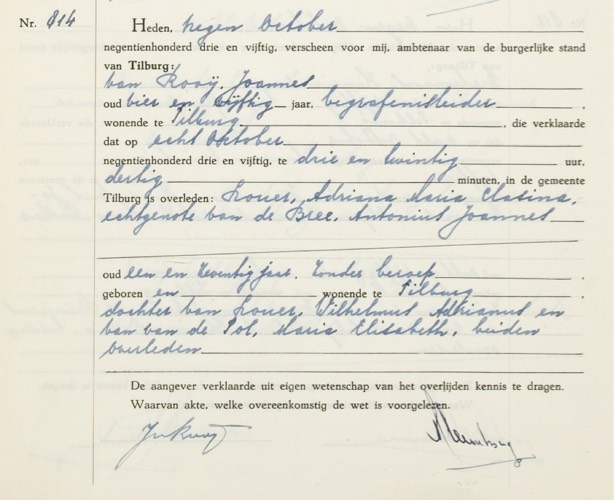 Nr. 814
Heden, negen October
negentienhonderd drie en vijftig, verscheen voor mij, ambtenaar van de burgerlijke stand
van Tilburg:
van Rooij, Joannes
oud vier en vijftig jaar, begrafenisleider,
wonende te Tilburg, die verklaarde
dat op acht October
negentienhonderd drie en vijftig, te drie en twintig uur,
dertig minuten, in de gemeente
Tilburg is overleden: Maria
echtgenote van de Bree, Antonius Joannes
oud een en zeventig jaar, zonder beroep,
geboren en wonende te Tilburg,
dochter van Wilhelmus Adrianus en
van van de Pol, Maria Elisabeth, beiden
overleden
De aangever verklaarde uit eigen wetenschap van het overlijden kennis te dragen.
Waarvan akte, welke overeenkomstig de wet is voorgelezen.